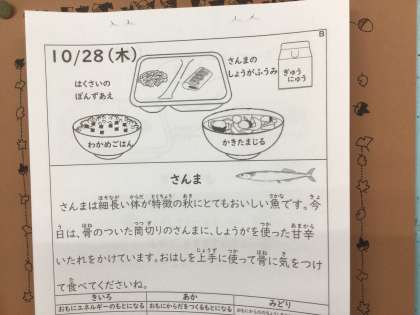 B
10/28(木)
さんまの
しょうがふうみ
ぎゅう
にゅう
はくさいの
ぽんずあえ
わかめごはん
かきたまじる
さんま
さんまは細長い体が特徴の秋にとてもおいしい魚です。今
日は、骨のついた筒切りのさんまに、しょうがを使った甘辛
いたれをかけています。おはしを上手に使って骨に気をつけ
て食べてくださいね。
きいろ
あか
みどり
おもにエネルギーのもとになる
おもにからだをつくるもとになる